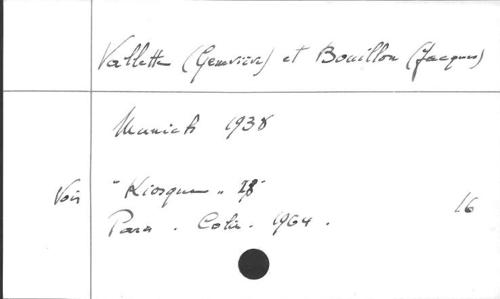 Vallette (Geneviève) et Bouillon (Jacques)
Munich 1938
Voir "Kiosque" 
Para. Colin. 1964. 16